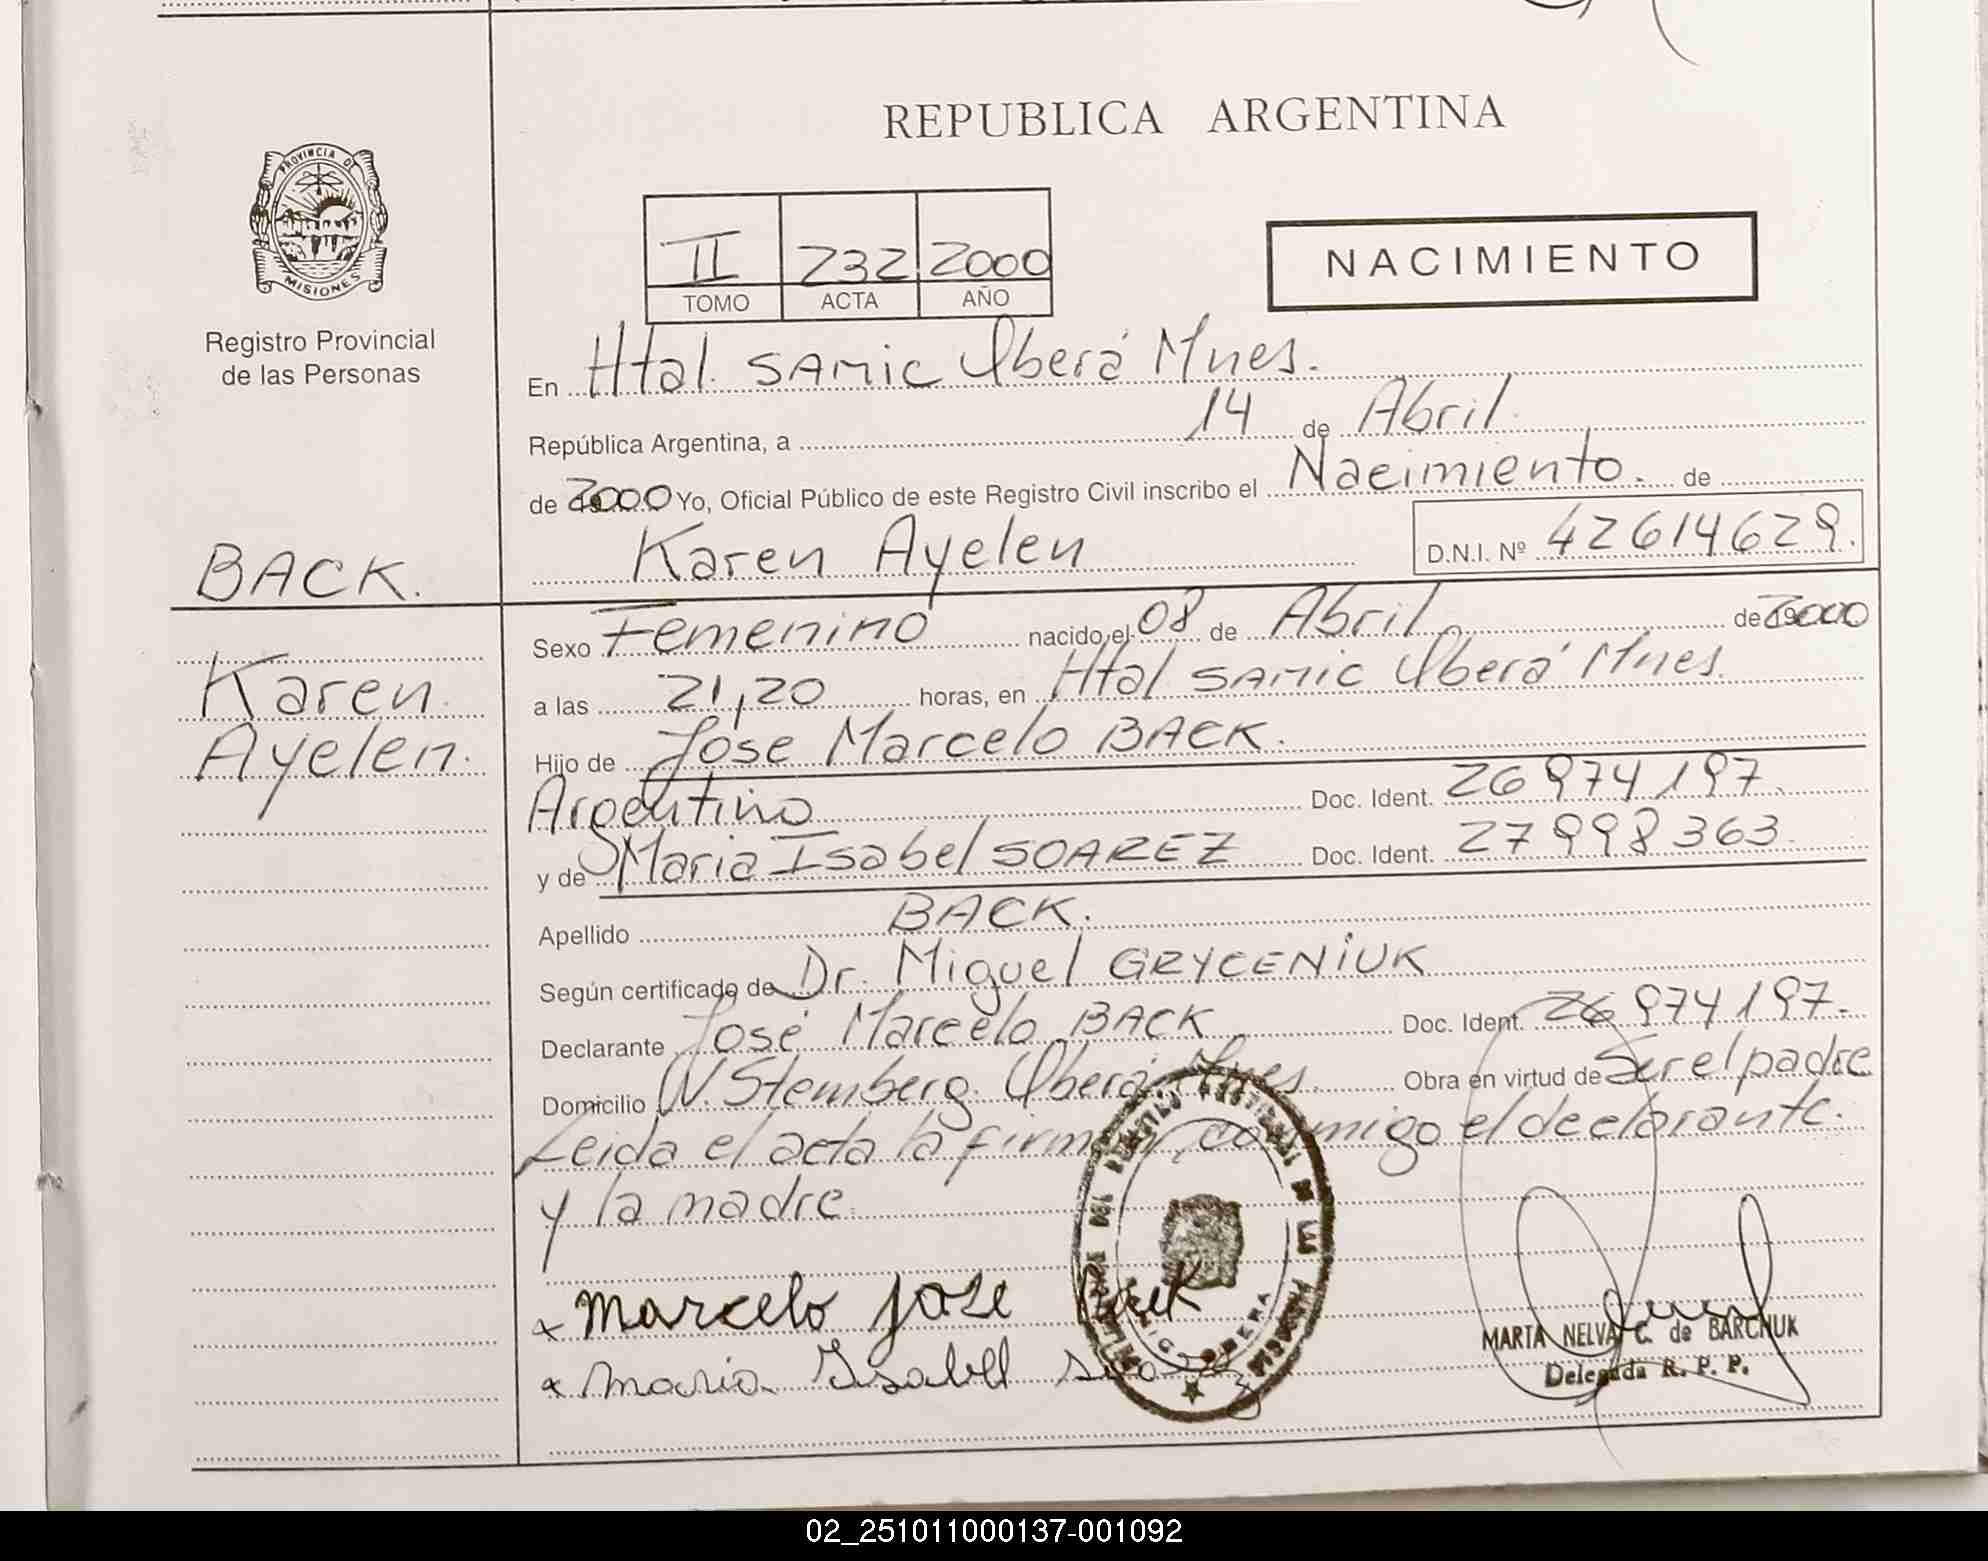 REPUBLICA ARGENTINA
PROVINCIA DE
MISIONES
Registro Provincial
de las Personas
II 232 2000
TOMO ACTA AÑO
NACIMIENTO
En Htal. SAMIC Oberá Mnes.
República Argentina, a 14 de Abril.
de 2000 Yo, Oficial Público de este Registro Civil inscribo el Nacimiento. de
Karen Ayelen D.N.I. Nº 42614629.
BACK.
Karen
Ayelen.
Sexo Femenino nacido el 08 de Abril de 2000
a las 21,20 horas, en Htal SAMIC Oberá Mnes.
Hijo de Jose Marcelo BACK.
Argentino Doc. Ident. 26974197.
y de Maria Isabel SOAREZ Doc. Ident. 27998363.
Apellido BACK.
Según certificado de Dr. Miguel GRYCENIUK
Declarante José Marcelo BACK Doc. Ident. 26974197.
Domicilio W. Stemberg. Oberá Mnes. Obra en virtud de Ser el padre
Leida el acta la firman conmigo el declarante.
y la madre.
x Marcelo Jose Back
x Maria Isabel
OBERA
MARTA NELVA C. de BARCHUK
Delegada R. P. P.
02_251011000137-001092